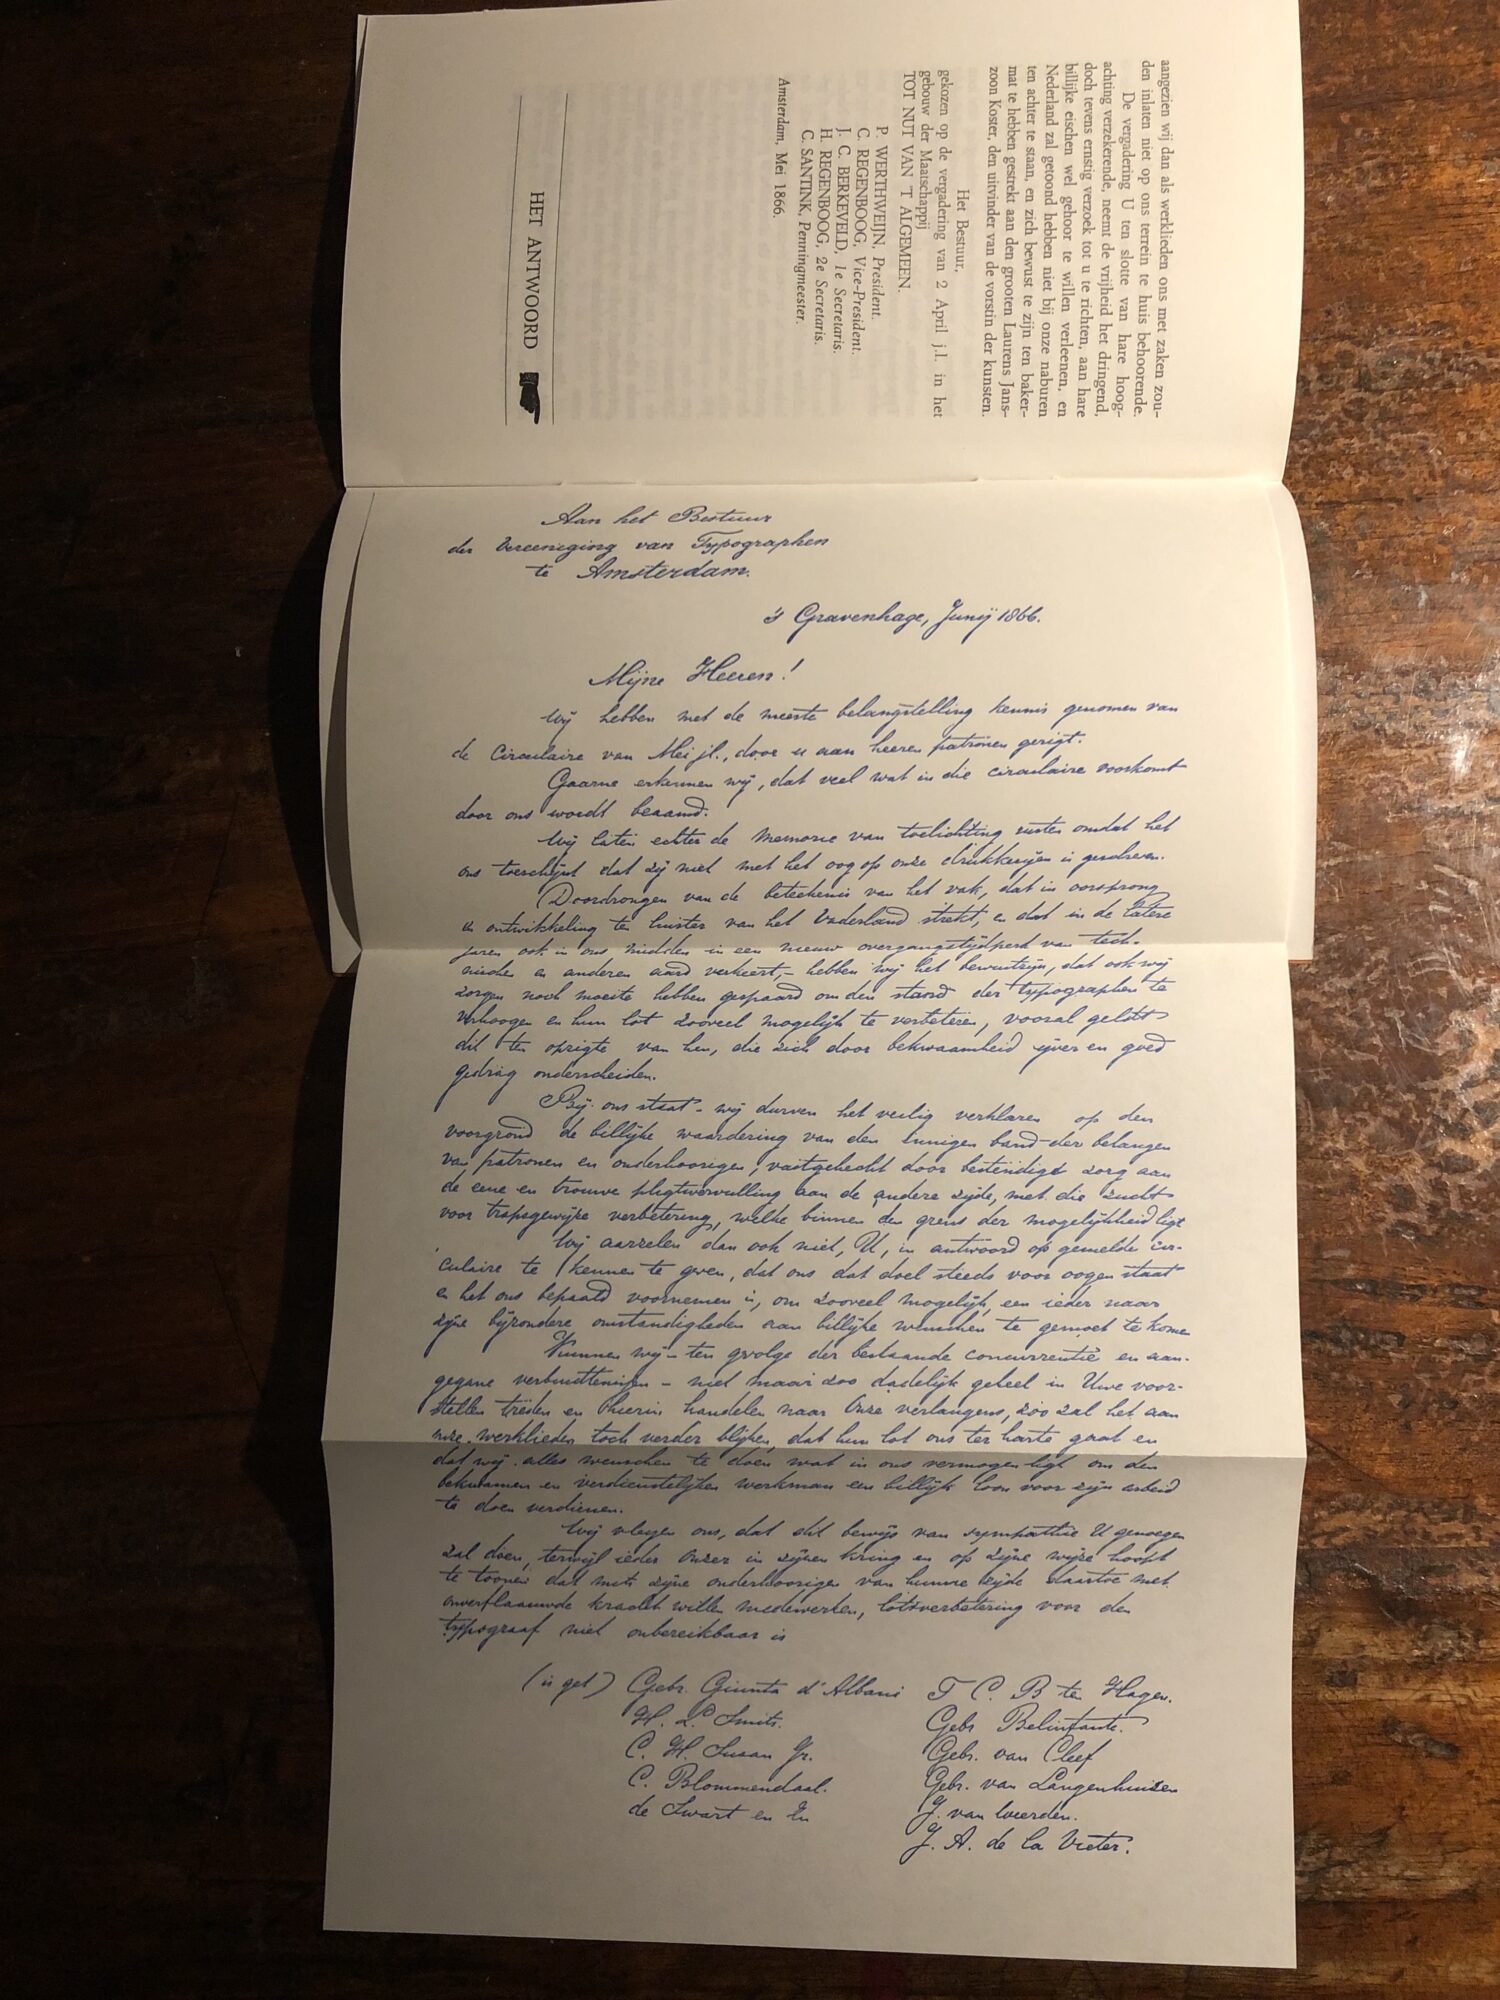 aangezien wij dan als werklieden ons met zaken zou-
den inlaten niet op ons terrein te huis behoorende.
De vergadering U ten slotte van hare hoog-
achting verzekerende, neemt de vrijheid het dringend,
doch tevens ernstig verzoek tot u te richten, aan hare
billijke eischen wel gehoor te willen verleenen, en
Nederland zal getoond hebben niet bij onze naburen
ten achter te staan, en zich bewust te zijn ten baker-
mat te hebben gestrekt aan den grooten Laurens Jans-
zoon Koster, den uitvinder van de vorstin der kunsten.
Het Bestuur,
gekozen op de vergadering van 2 April j.l. in het
gebouw der Maatschappij
TOT NUT VAN 'T ALGEMEEN.
P. WERTHWEIJN, President.
C. REGENBOOG, Vice-President.
J. C. BERKEVELD, 1e Secretaris.
H. REGENBOOG, 2e Secretaris.
C. SANTINK, Penningmeester.
Amsterdam, Mei 1866.
HET ANTWOORD
Aan het Bestuur
der Vereeniging van Typographen
te Amsterdam.
's Gravenhage, Junij 1866.
Mijne Heeren!
Wij hebben met de meeste belangstelling kennis genomen van
de Circulaire van Mei jl., door u aan heeren patronen gerigt.
Gaarne erkennen wij, dat veel wat in die circulaire voorkomt
door ons wordt beaamd.
Wij laten echter de memorie van toelichting rusten omdat het
ons toeschijnt dat zij niet met het oog op onze drukkerijen is geschreven.
Doordrongen van de beteekenis van het vak, dat in oorsprong
en ontwikkeling ten luister van het Vaderland strekt, en dat in de latere
jaren ook in ons midden in een nieuw overgangstijdperk van tech-
nischen en anderen aard verkeert, - hebben wij het bewustzijn, dat ook wij
zorgen noch moeite hebben gespaard om den stand der typographen te
verhoogen en hun lot zooveel mogelijk te verbeteren, vooral geldt
dit ten opzigte van hen, die zich door bekwaamheid ijver en goed
gedrag onderscheiden.
Bij ons staat - wij durven het veilig verklaren op den
voorgrond de billijke waardering van den innigen band der belangen
van patronen en onderhoorigen, vastgehecht door bestendige zorg aan
de eene en trouwe pligtvervulling aan de andere zijde, met die zucht
voor trapsgewijze verbetering, welke binnen den grens der mogelijkheid ligt
Wij aarzelen dan ook niet, U, in antwoord op gemelde cir-
culaire te kennen te geven, dat ons dat doel steeds voor oogen staat
en het ons bepaald voornemen is, om zooveel mogelijk, een ieder naar
zijne bijzondere omstandigheden aan billijke wenschen te gemoet te komen
Kunnen wij - ten gevolge der bestaande concurrentie en aan-
gegane verbindtenissen - niet maar zoo dadelijk geheel in Uwe voor-
stellen treden en hierin handelen naar Onze verlangens, zoo zal het aan
onze werklieden toch verder blijken, dat hun lot ons ter harte gaat en
dat wij alles wenschen te doen wat in ons vermogen ligt om den
bekwamen en verdienstelijken werkman een billijk loon voor zijn arbeid
te doen verdienen.
Wij vleijen ons, dat dit bewijs van sympathie U genoegen
zal doen, terwijl ieder onzer in zijnen kring en op zijne wijze hoopt
te toonen dat mits zijne onderhoorigen van hunne zijde daartoe met
onverflaauwde kracht willen medewerken, lotsverbetering voor den
typograaf niet onbereikbaar is
(is get) Gebr. Giunta d'Albani
H. L. Smits.
C. H. Susan Jr.
C. Blommendaal.
de Swart en Zn
T C. B ten Hagen.
Gebr Belinfante.
Gebr. van Cleef
Gebr. van Langenhuizen
J. van Weerden.
J. A. de la Vieter.